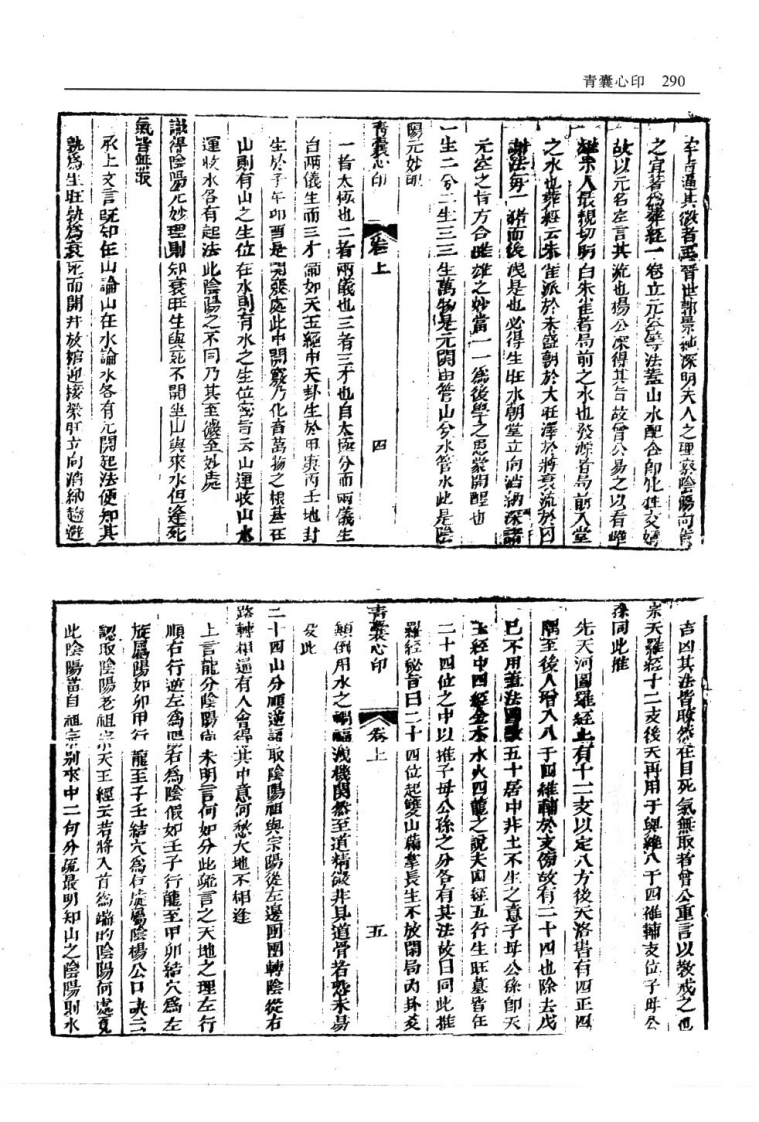 青囊心印 290
之宜著為雌雄經一卷立元空等法蓋山水配合即化牲交媾
故以元名空言其流也楊公深得其旨故曾公易之以看雌
雄示人最親切明白朱雀者局前之水也發源者局前入堂
之水也葬經云朱雀派於未盛朝於大旺澤於將衰流於囚
謝法每一瀦而後洩是也必得生旺水朝堂立向消納深諳
元空之旨方合雌雄之妙當一一為後學之思蒙開醒也
一生二兮二生三三生萬物是元關由管山兮水管水此是陰
陽元妙訣
青囊心印
卷上
四
一者太極也二者兩儀也三者三才也自太極分而兩儀生
自兩儀生而三才備如天玉經中天卦生於甲庚丙壬地卦
生於子午卯酉是其發處此中開竅乃化育萬物之根基在
山則有山之生位在水則有水之生位寶言云山運收山水
運收水各有起法此陰陽之不同乃其至微至妙處
識得陰陽元妙理則知衰旺生與死不問坐山與來水但逢死
氣皆無取
承上文言既知在山論山在水論水各有元關起法便知其
孰為生旺孰為衰死而開井放棺迎接祭旺立向消納趨避
吉凶其法皆瞭然在目死氣無取者曾公重言以教戒之也
先天羅經十二支後天再用干與維八干四維輔支位子母公
孫同此推
先天河圖羅經止有十二支以定八方後天洛書有四正四
隅至後人增入八干四維輔於支傍故有二十四也除去戊
己不用蓋法圖書五十居中非土不生之意子母公孫即天
玉經中四經金木水火四龍之說夫四經五行生旺墓皆在
二十四位之中以推子母公孫之分各有其法故曰同此推
羅經秘旨曰二十四位起雙山備羣長生不放閒局內卦爻
顛倒用水之禍福洩機關然至道精微非具道骨者慇未易
及此
青囊心印
卷上
五
二十四山分順逆認取陰陽祖與宗陽從左邊團團轉陰從右
路轉相通有人會得其中意何愁大地不相逢
上言龍分陰陽尚未明言何如分此疏言之天地之理左行
順右行逆左為陽右為陰假如壬子行龍至甲卯結穴為左
旋屬陽如卯甲行龍至子壬結穴為右旋屬陰楊公口訣云
認取陰陽老祖宗天玉經云若將入首為端的陰陽何處覓
此陰陽當自祖宗別來中二句分疏最明知山之陰陽則水